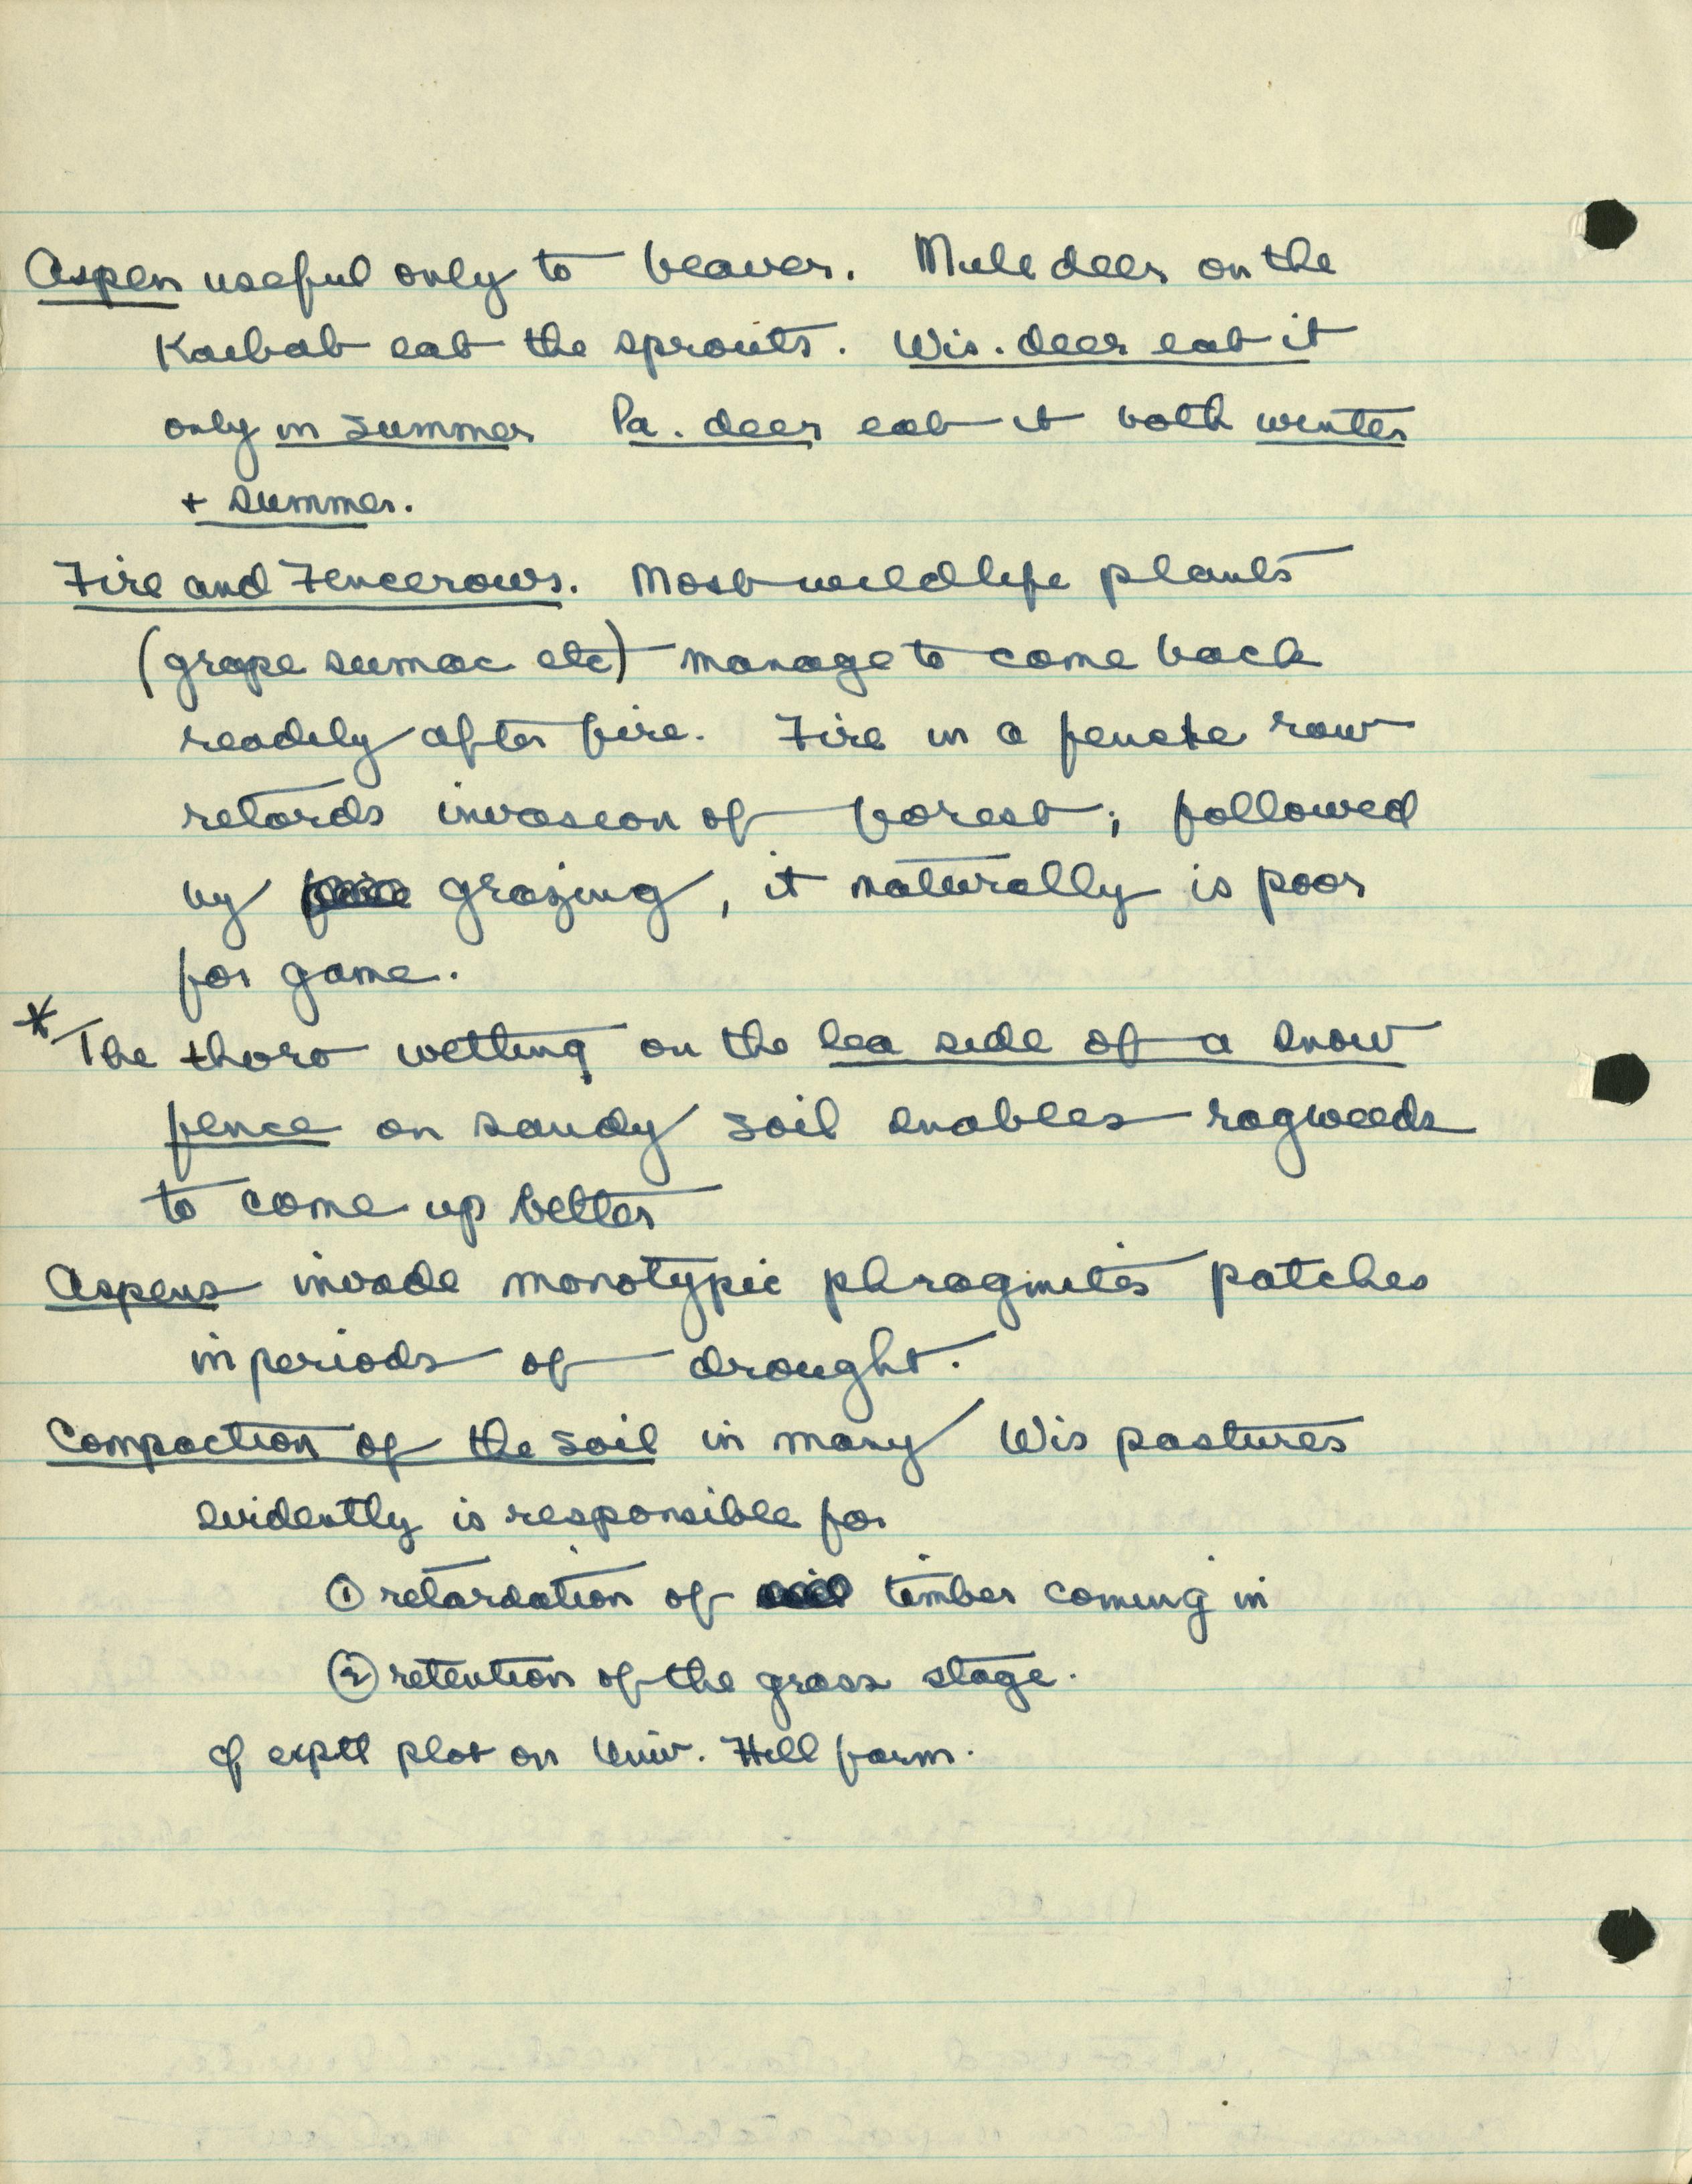 Aspen useful only to beaver. Mule deer on the
Kaibab eat the sprouts. Wis. deer eat it
only in summer Pa. deer eat it both winter
+ summer.
Fire and Fencerows. Most wildlife plants
(grape sumac etc) manage to come back
readily after fire. Fire in a fence row
retards invasion of forest; followed
by grazing, it naturally is poor
for game.
* The thoro wetting on the lea side of a snow
fence on sandy soil enables ragweeds
to come up better
Aspens invade monotypic phragmites patches
in periods of drought.
Compaction of the soil in many Wis pastures
evidently is responsible for
① retardation of timber coming in
② retention of the grass stage.
cf exptl plot on Univ. Hill farm.